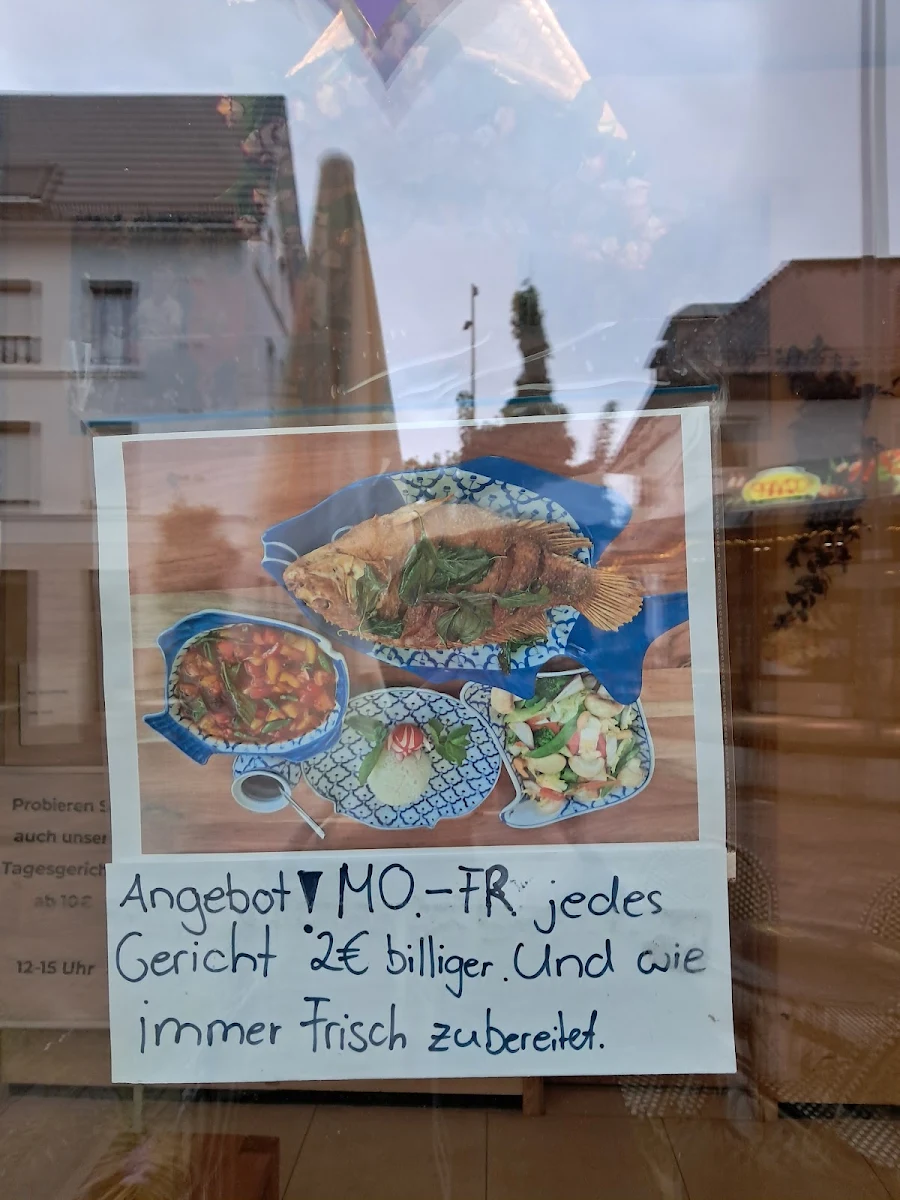 Probieren S
auch unser
Tagesgerich
ab 10€
12-15 Uhr
Angebot! MO.-FR. jedes
Gericht 2€ billiger. Und wie
immer Frisch zubereitet.